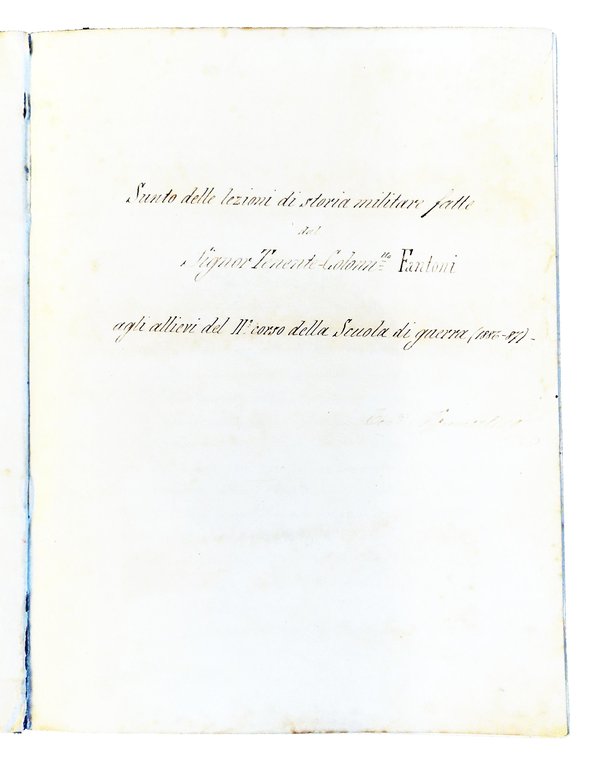 Sunto delle lezioni di storia militare fatte
dal
Signor Tenente-Colonn.llo Fantoni
agli allievi del II° corso della Scuola di guerra (1886-87).